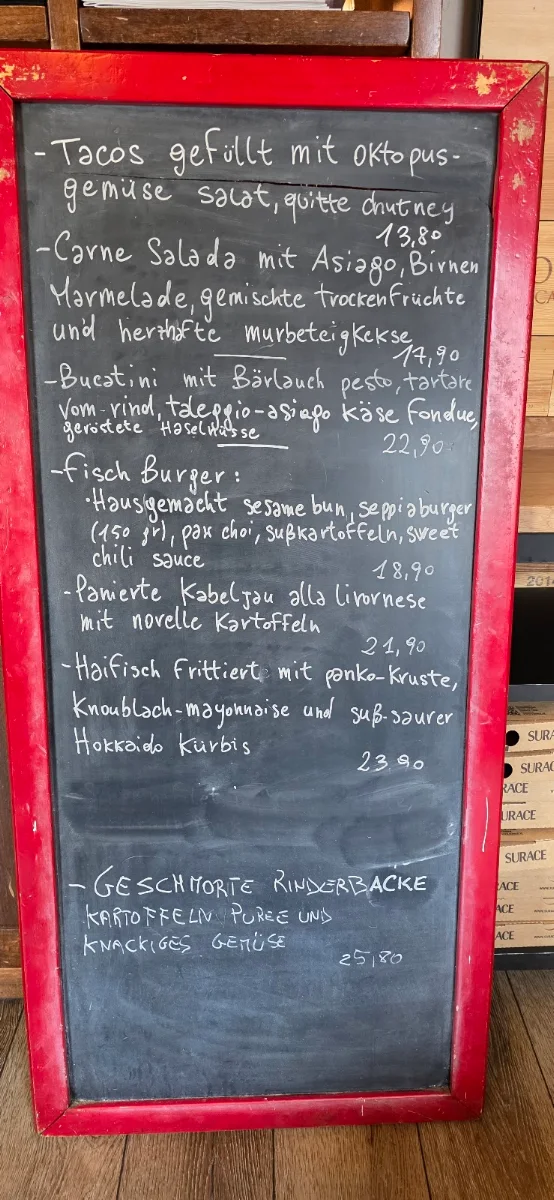 - Tacos gefüllt mit oktopus-
gemüse salat, quitte chutney
13,80
- Carne Salada mit Asiago, Birnen
Marmelade, gemischte trockenfrüchte
und herzhafte murbeteigkekse
17,90
- Bucatini mit Bärlauch pesto, tartare
vom rind, taleggio-asiago käse fondue,
geröstete Haselnüsse
22,90
- Fisch Burger:
• Hausgemacht sesame bun, seppiaburger
(150 gr), pak choi, sußkartoffeln, sweet
chili sauce
18,90
- Panierte Kabeljau alla livornese
mit novelle Kartoffeln
21,90
- Haifisch frittiert mit panko-kruste,
Knoublach-mayonnaise und suß-saurer
Hokkaido Kürbis
23.90
- GESCHMORTE RINDERBACKE
KARTOFFELN PÜREE UND
KNACKIGES GEMÜSE
25,80
2014
SURA
SURAC
RACE
SURACE
SURACE
ACE
ACE
ACE